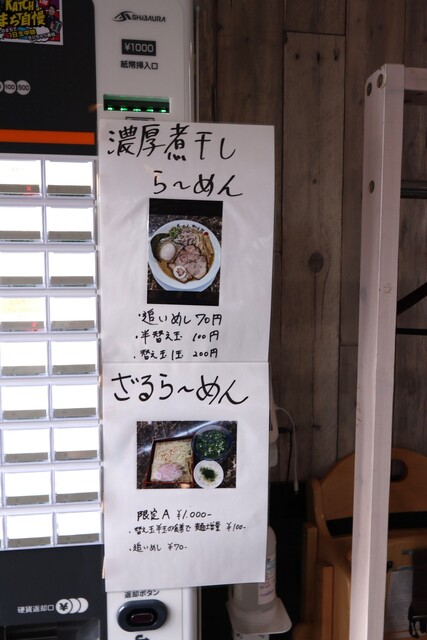 KATCH
まち自慢
SHIBAURA
¥1000
紙幣挿入口
100 500
濃厚煮干し
ら〜めん
・追いめし 70円
・半替え玉 100円
・替え玉1玉 200円
ざるら〜めん
限定A ¥1.000-
・替え玉半玉の金額で 麺増量 ¥100-
・追いめし ¥70-
返却ボタン
硬貨返却口